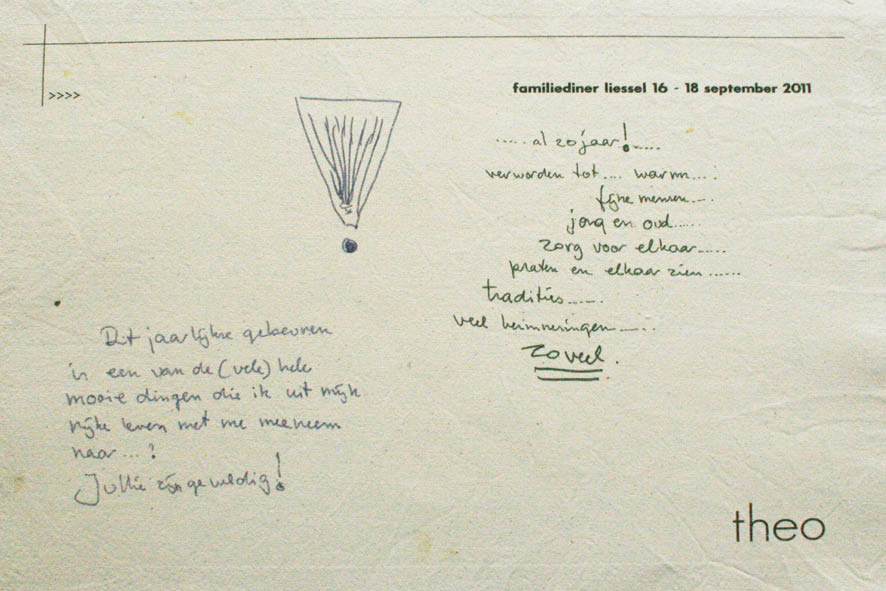 >>>>
familiediner liessel 16 - 18 september 2011
..... al 20 jaar! .....
verworden tot .... warm ... :
fijne mensen ....
jong en oud .....
zorg voor elkaar .....
praten en elkaar zien ......
tradities ......
veel herinneringen ......
zoveel.
Dit jaarlijkse gebeuren
is een van de (vele) hele
mooie dingen die ik uit mijn
rijke leven met me meeneem
naar ... ?
Jullie zijn geweldig!
theo